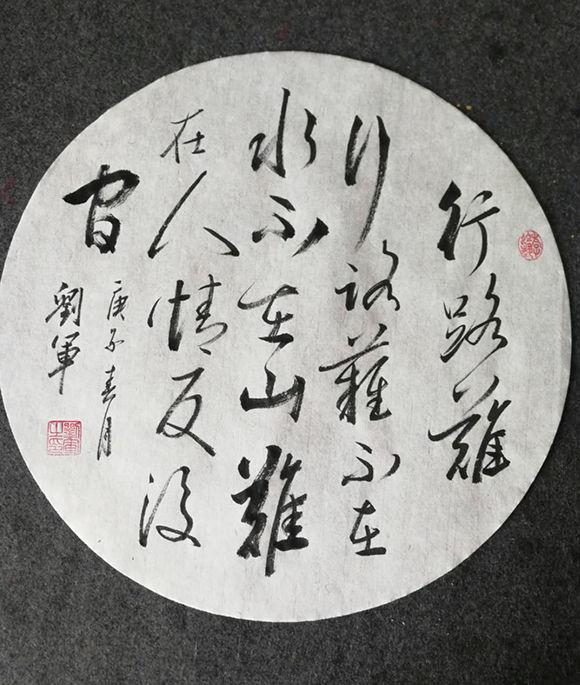 行路難
行路難不在
水不在山難
在人情反復
間
庚子春月
劉軍